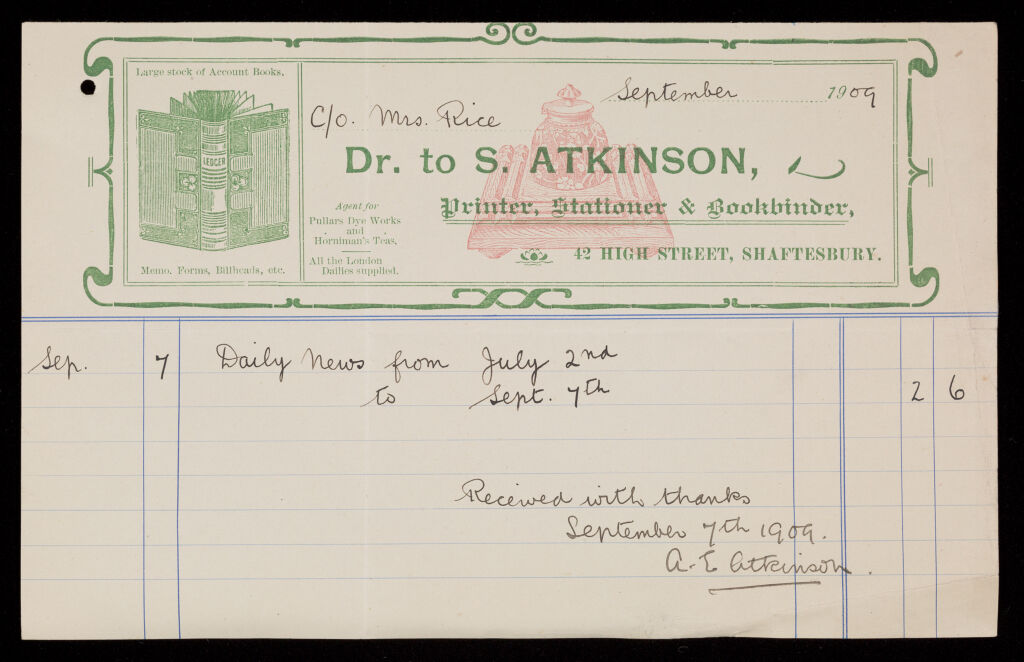 Large stock of Account Books.
LEDGER
Memo. Forms, Billheads, etc.
September 1909
C/o. Mrs. Rice
Dr. to S. ATKINSON,
Printer, Stationer & Bookbinder,
42 HIGH STREET, SHAFTESBURY.
Agent for
Pullars Dye Works
and
Horniman's Teas.
All the London
Dailies supplied.
Sep. 7 Daily News from July 2nd
to Sept. 7th 2 6
Received with thanks
September 7th 1909.
A. E Atkinson.